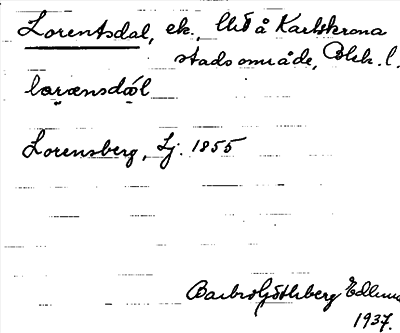 Lorentsdal, ek., Utö å Karlskrona
stadsområde, Blek. l.
lorænsdɑ́l
Lorensberg, Lj. 1855
Barbro Götlberg Edlund
1937.